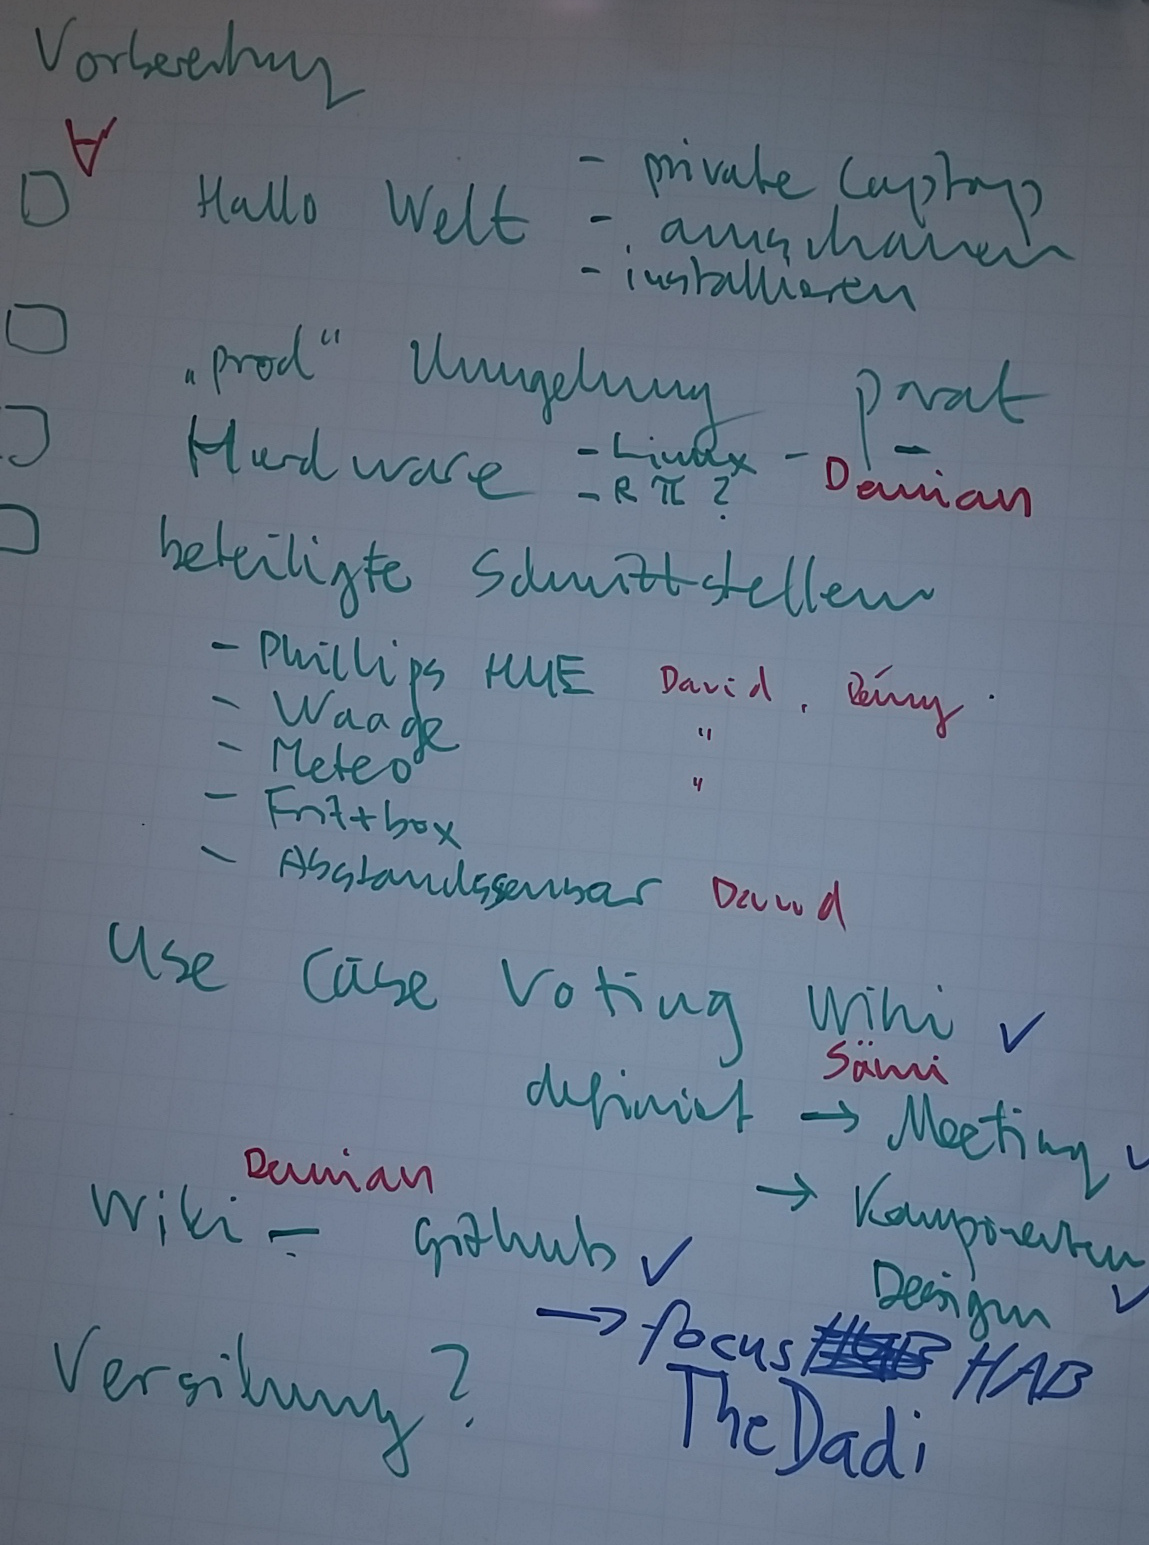 Vorbereitung
∀
Hallo Welt - private Laptops
- anschauen
- installieren
„prod“ Umgebung privat
Hardware - Linux - Damian
- R π ?
beteiligte Schnittstellen
- Phillips HUE David, Rémy
- Waage "
- Meteo "
- Fritzbox
- Abstandssensor David
Use Case Voting Wiki ✓
Sämi
definiert → Meeting ✓
Damian
→ Komponenten
Wiki - github ✓
Design ✓
→ focus HAB
Versihung?
TheDadi